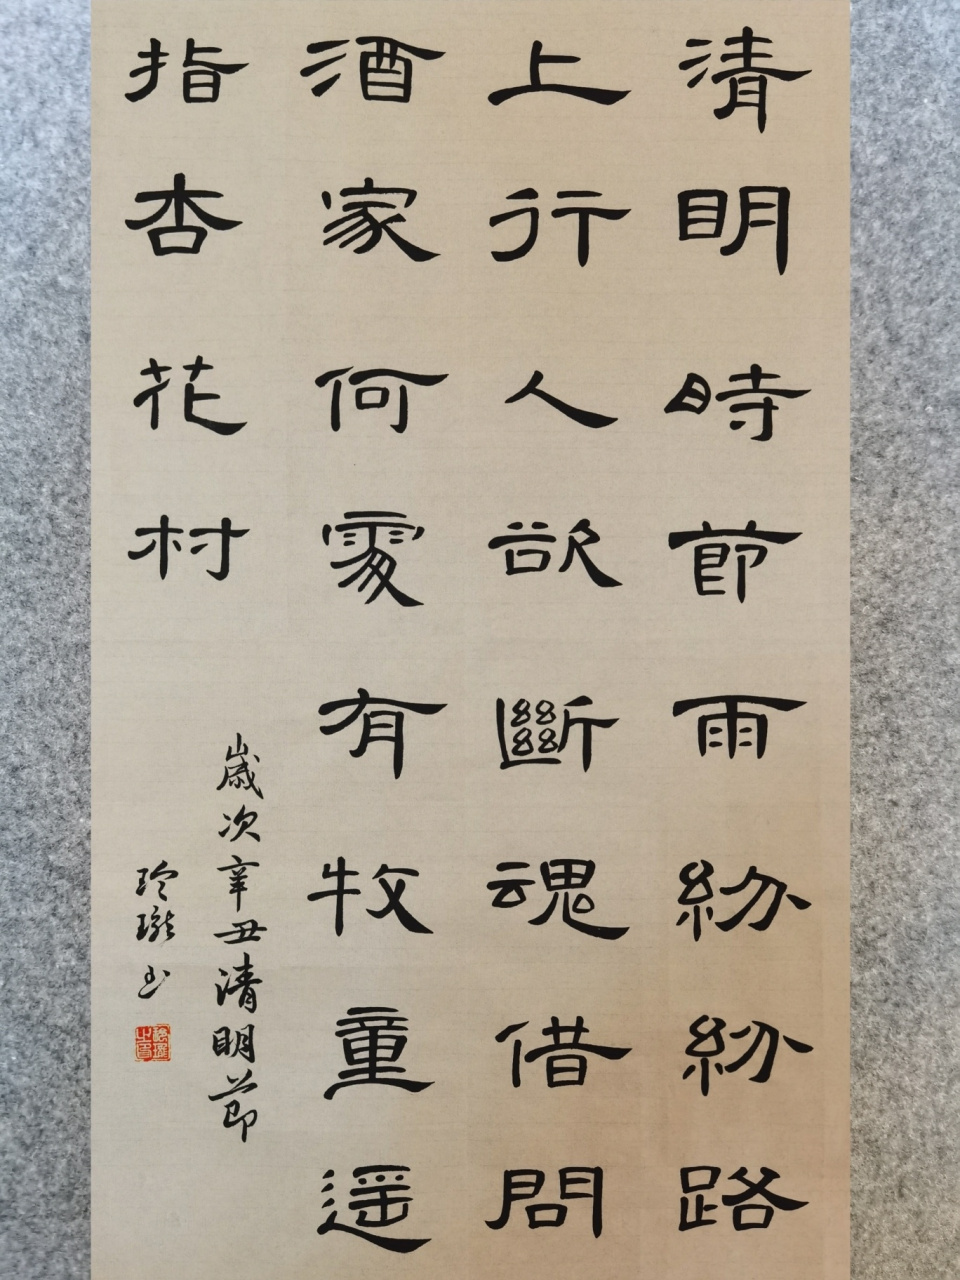 清明時節雨紛紛路
上行人欲斷魂借問
酒家何處有牧童遥
指杏花村
歲次辛丑清明節
玲瓏书